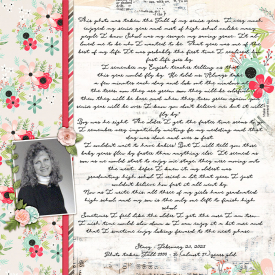 This photo was taken the Fall of my senior year. I very much
enjoyed my senior year and most of high school unlike many
people I know. School was my escape my senior year. It
allowed me to be who I wanted to be. That year was one of the
best of my life. It was probably the first time I realized how
fast life goes by.
I remember my English teacher telling us that
this year would fly by. He told us "Always take a
few minutes each day and look out the window at
the trees they are green now they will be
then they will be bare and when they turn green again your
senior year will be over. I know you don't believe me but it will
fly by!"
Boy was he right. The older I get the faster time seems to
I remember very impatiently waiting for my wedding and that day
was here and over so fast.
I couldn't wait to have babies! But I will tell you those
baby years flew by faster than anything else. It seemed as
soon as we would start to enjoy one stage they were moving onto
the next. Before I knew it my oldest was
graduating high school. I cried a lot that year. I just
couldn't believe how fast it all went by.
Now as I write this all three of my girls have graduated
high school and my son is the only one left to finish high
school.
Sometimes I feel like the older I get the more I can
time would slow down so I can enjoy it a bit more and
that I continue enjoy looking forward to the next phase.
Stacy - February 20, 2023
Photo taken Fall 1990 - I was almost 17 years old